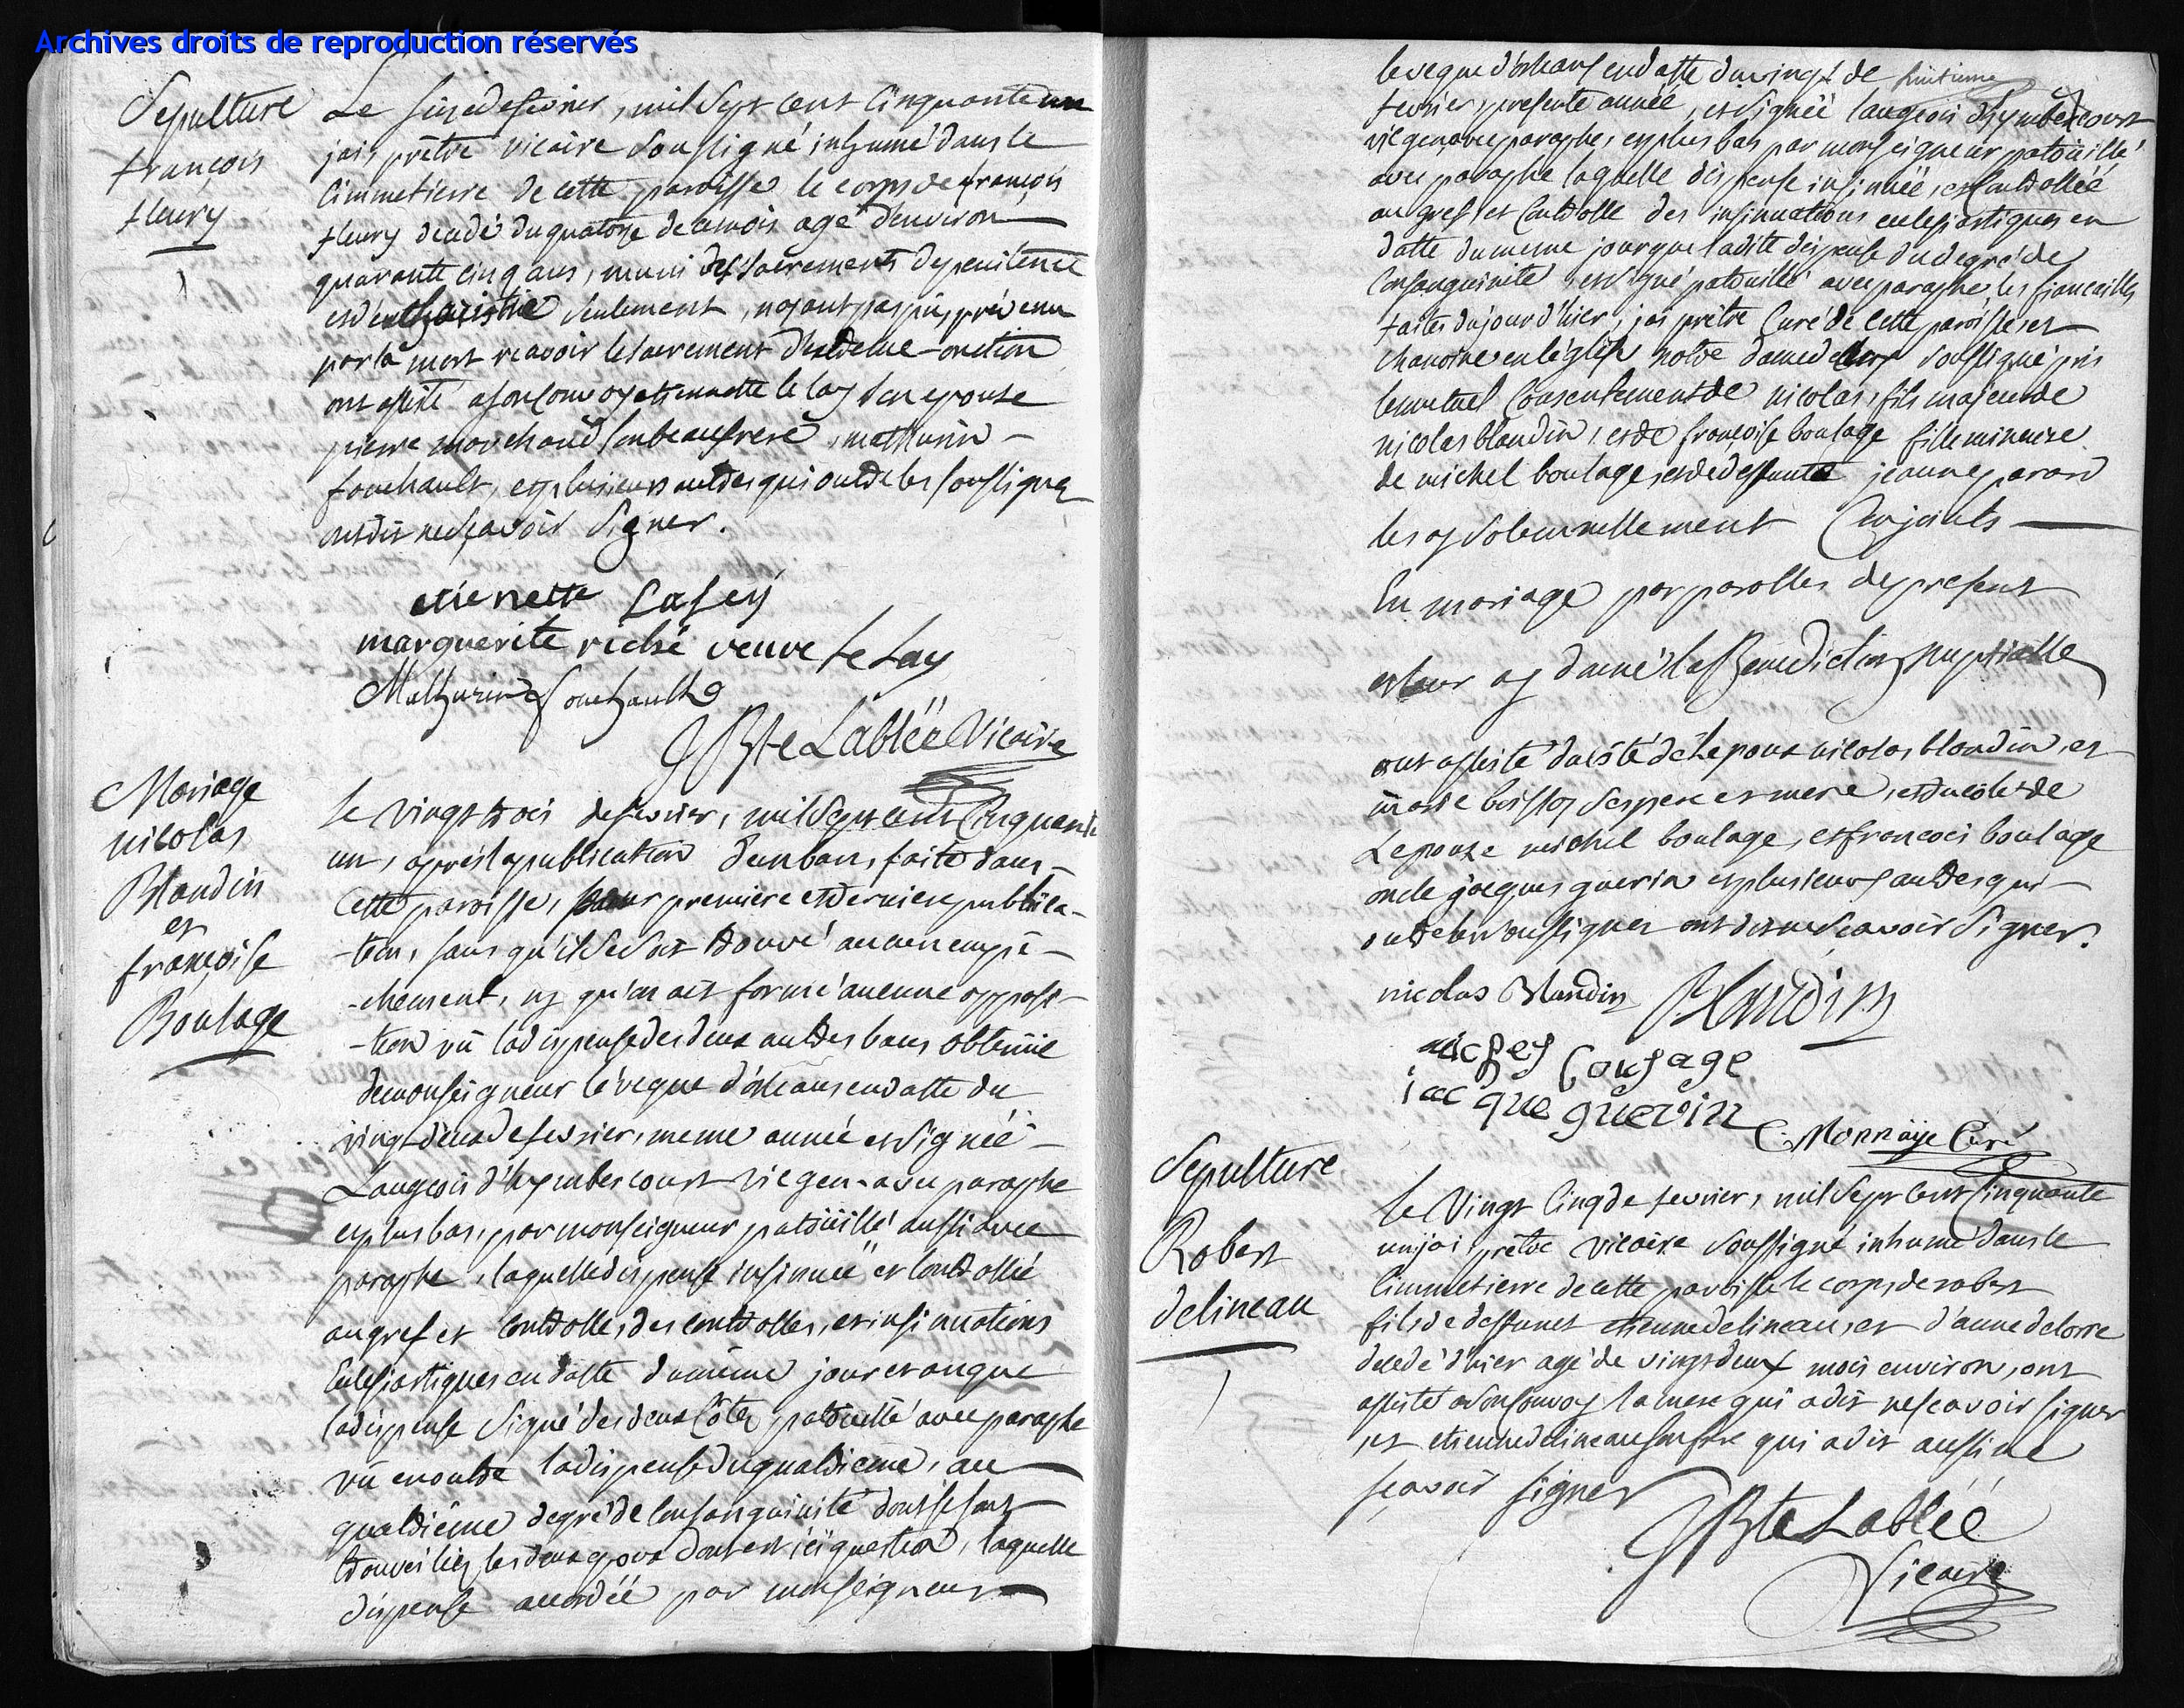 Archives droits de reproduction réservés
Sepulture
françois
fleury
Le seize de fevrier, mil sept cent cinquante un
jai, prêtre vicaire soussigné inhumé dans le
cimmetierre de cette paroisse le corps de françois
fleury decedé du quatorze de ce mois agé d'environ
quarante cinq ans, muni des sacrements de penitence
et d'eucharistie seulement, n'ayant pas pû, prévenu
par la mort recevoir le sacrement d'extreme-onction
ont assisté a son convoy etiennette le lay son epouse
pierre marchand son beaufrere, mathurin
fouchault, et plusieurs autres qui outre les soussignez
ont dit ne sçavoir signer.
etienette
marguerite riché veuve le Lay
Mathurin fouchault
JBte Lablée Vicaire
Mariage
nicolas
Blandin
et
françoise
Boulage
le vingt trois de fevrier, mil sept cent cinquante
un, après la publication d'un ban, faite dans
cette paroisse, pour premiere et derniere publica-
-tion, sans qu'il se soit trouvé aucun empê-
-chement, ny qu'on ait formé aucune opposi-
-tion vû la dispense des deux autres bans obtenüe
de monseigneur l'éveque d'orleans en datte du
vingt deux de fevrier, meme année et signéé
Laugeois d'hymbercourt vic gen. avec paraphe
et plus bas, par monseigneur patoüillé aussi avec
paraphe, laquelle dispense insinuëe et controllée
au greffe et controlle, des controlles, et insinuations
eclesiastiques en datte du même jour et an que
la dispense signé des deux côtez patouillé avec paraphe
vû en outre la dispense du quatrieme, au
quatrieme degré de consanguinité dont se sont
trouvés liez les deux epoux dont est ici question, laquelle
dispense accordéé par monseigneur
leveque d'orleans en datte du vingt de
fevrier, presente année, et signéé laugeois d'hymbercourt
vic gen avec paraphe, et plus bas par monseigneur patoüillé
avec paraphe laquelle dispense insinuëe, et controlléé
au greffe et controlle des insinuations eclesiastiques en
datte du meme jour que ladite dispense du degré de
consanguinité, et signé patouillé avec paraphe, les fiançailles
faites du jour d'hier, jai prêtre curé de cette paroisse et
chanoine en l'église notre dame de soussigné pris
le mutuel consentement de nicolas, fils majeur de
nicolas blandin, et de françoise boulage fille mineure
de michel boulage, et de deffunte jeanne parard
les ay solemnellement conjoints
en mariage par parolles de present
et leur ay donné la Benediction nuptialle
ont assisté du côté de l'epoux nicolas blandin, et
marie ses pere et mere, et du côté de
L'epouse michel boulage, et francois boulage
oncle jacques guerin et plusieurs autres qui
outre les soussignez ont dit ne sçavoir signer.
nicolas Blandin Blandin
michel boulage
iacque guerin
Monnaye Curé
Sepulture
Robert
delineau
le vingt cinq de fevrier, mil sept cent cinquante
un jai, prêtre vicaire soussigné inhumé dans le
cimmetierre de cette paroisse le corps de robert
fils de deffunct etienne delineau, et d'anne delorre
decedé d'hier agé de vingt deux mois environ, ont
assisté a son convoy la mere qui a dit ne scavoir signer
, et etienne delineau son frere qui a dit aussi ne
sçavoir signer
JBte Lablée
Vicaire